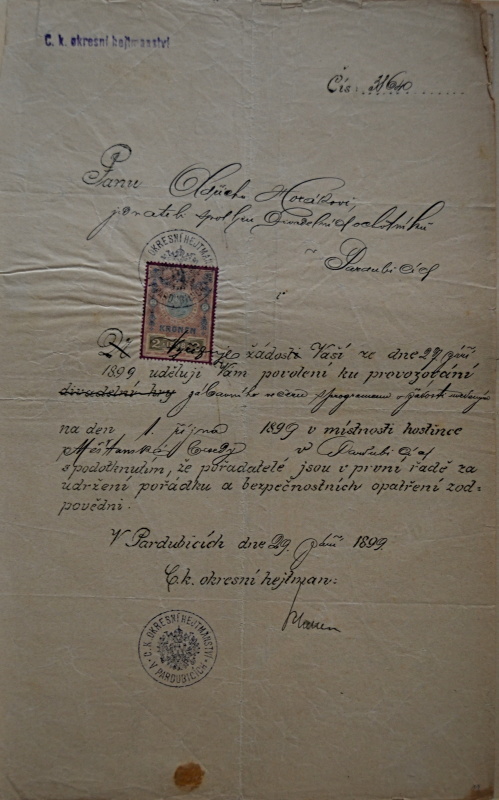 C. k. okresní hejtmanství
Čís.
Panu Horákovi,
jednateli spolku
v Pardubicích
C.K. OKRESNÍ HEJTMANSTVÍ
KRONEN
2
Vyřizuje žádosti Vaší ze dne 27 září
1899 uděluji Vám povolení ku provozování
divadelní hry zábavného s programem
na den 1. října 1899 v místnosti hostince
Měšťanská v Pardubicích
s podotknutím, že pořadatelé jsou v první řadě za
udržení pořádku a bezpečnostních opatření zod-
povědni.
V Pardubicích dne 29. září 1899.
C. k. okresní hejtman:
C.K. OKRESNÍ HEJTMANSTVÍ
V PARDUBICÍCH